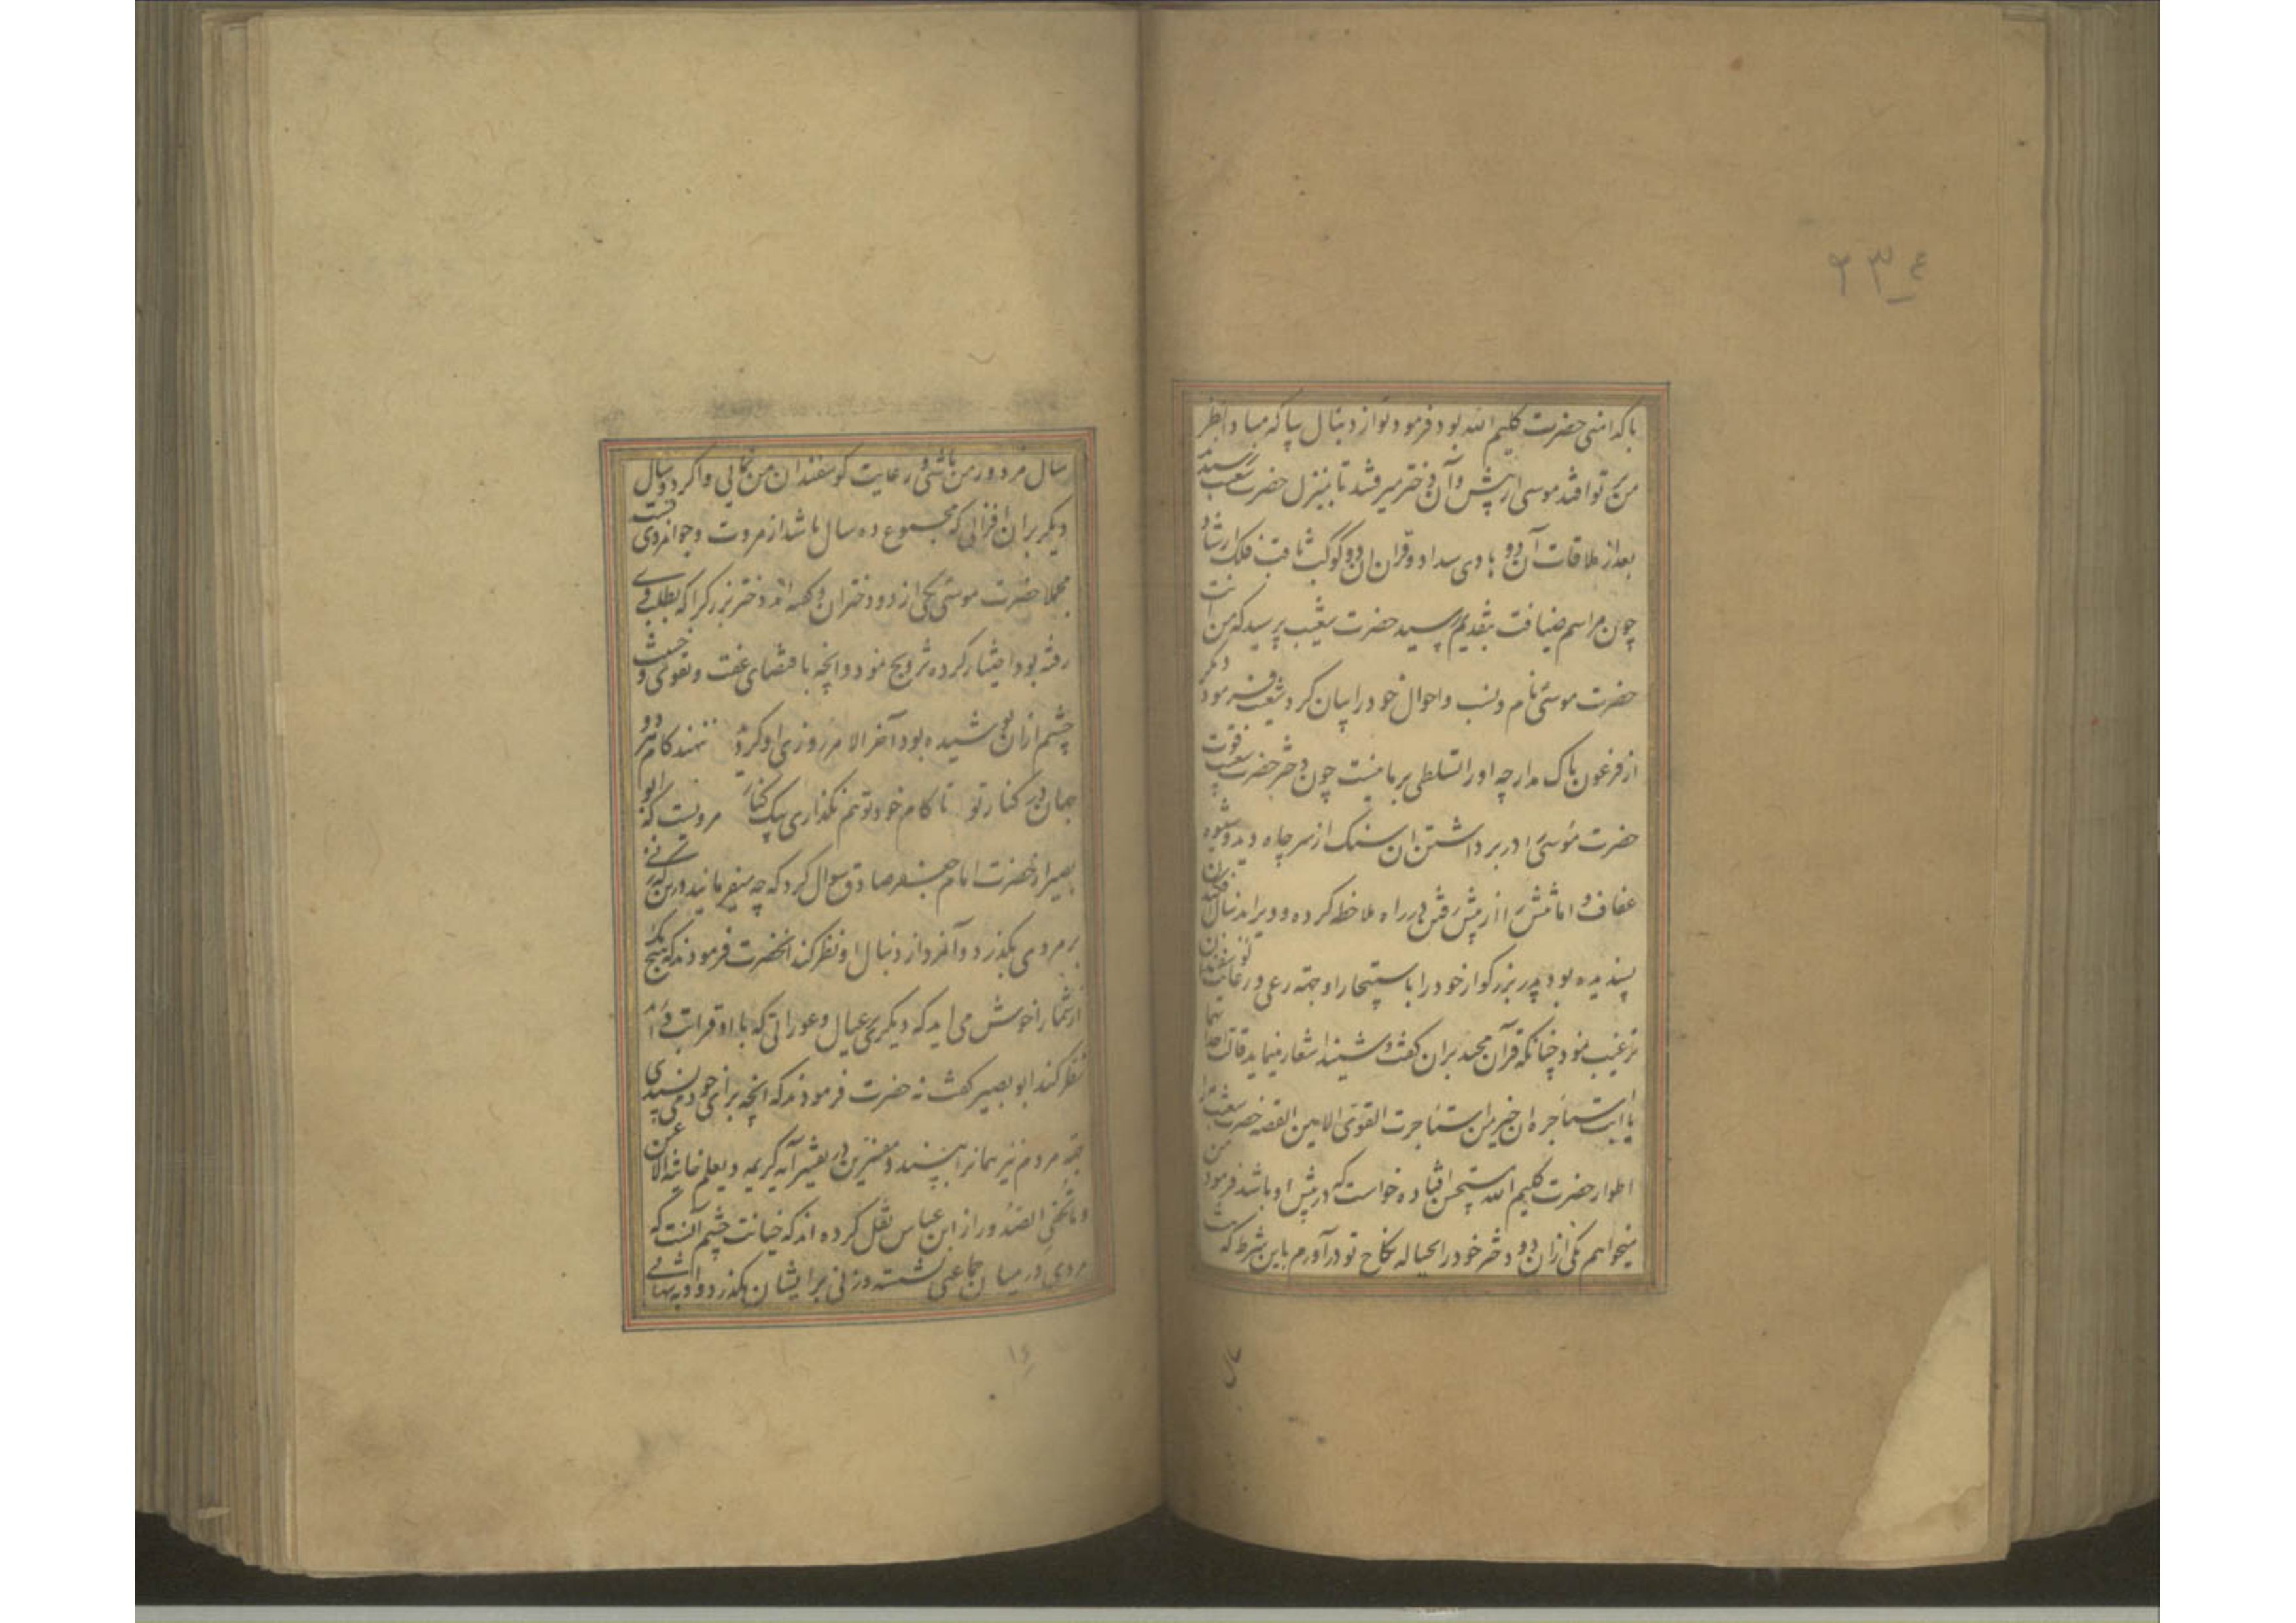 ۲۳۴
پاکدامنی حضرت کلیم الله بود فرمود تو از دنبال بیا که مبادا نظر
من بر تو افتد موسی از پیش و آن دختر میرفتند تا بمنزل حضرت شعیب رسیدند
بعد از ملاقات آن دو هادی سداد و قران ان دو کوکب ثاقب فلک ارشاد
چون مراسم ضیافت بتقدیم رسید حضرت شعیب پرسید که من انت
حضرت موسی نام و نسب و احوال خود را بیان کرد شعیب فرمود دیگر
از فرعون باک مدار چه او را تسلطی بر ما نیست چون دختر حضرت شعیب قوت
حضرت موسی را در برداشتن ان سنک از سر چاه دید و شیوه
عفاف و امانتش را از پیش رفتن در راه ملاحظه کرده و ویرا بدنبال
پسندیده بود پدر بزرکوار خود را باستیجار او جهة رعی و رعایت کوسفندان
ترغیب نمود چنانکه قرآن مجید بران کفت و شنید اشعار مینماید قالت احدیهما
یا ابت استاجره ان خیر من استاجرت القوی الامین القصه حضرت شعیب را
اطوار حضرت کلیم الله مستحسن افتاده خواست که در پیش او باشد فرمود من
میخواهم یکی ازان دو دختر خود را بحباله نکاح تو در آورم باین شرط که هشت
سال مزدور من باشی و رعایت کوسفندان من نمایی و اکر دو سال
دیکر بران افزائی که مجموع ده سال باشد از مروت و جوانمردی تست
مجملا حضرت موسی یکی از دو دختران و کفته اند دختر بزرک را که بطلب وی
رفته بود اختیار کرده تزویج نمود و انچه باقتضای عفت و تقوی و خشیت
چشم ازان پوشیده بود آخر الامر روزی او کرد نهند کام دو
جهان در کنار تو تا کام خود تو هم نکذاری بیک کنار مرویست که ابو
بصیر از حضرت امام جعفر صادق سوال کرد که چه میفرمائید درین که زنی
بر مردی بکذرد و آنمرد از دنبال او نظر کند انحضرت فرمودند که هیچ یک
از شما را خوش می آید که دیکری بر عیال و عوراتی که با او قرابت دارد
نظر کند ابو بصیر کفت نه حضرت فرمودند که انچه برای خود می پسندی
جهة مردم نیز همانرا بپسند و مفسرین در تفسیر آیه کریمه و یعلم خائنة الاعین
و ما تخفی الصدور از ابن عباس نقل کرده اند که خیانت چشم آنست که
مردی در میان جماعتی نشسته و زنی بر ایشان بکذرد و او به پنهانی